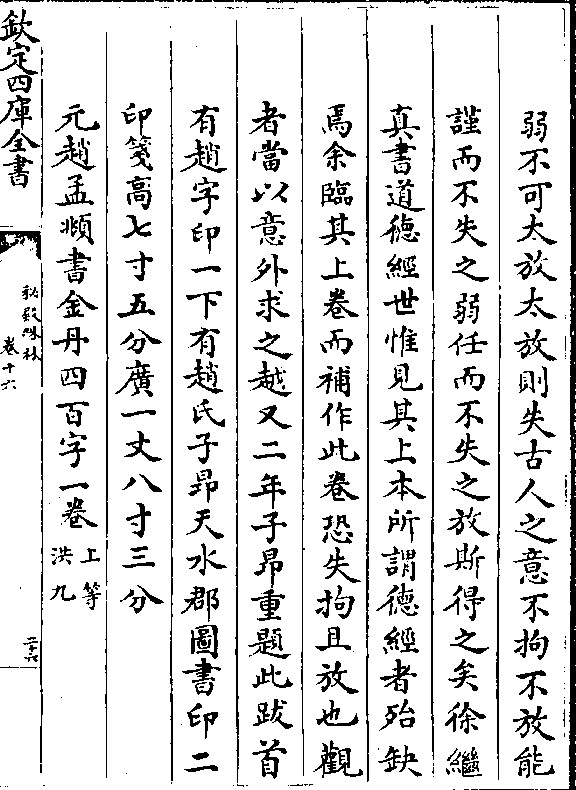 弱不可太放太放則失古人之意不拘不放能
謹而不失之弱任而不失之放斯得之矣徐繼
真書道德經世惟見其上本所謂德經者殆缺
焉余臨其上卷而補作此卷恐失拘且放也觀
者當以意外求之越又二年子昂重題此跋首
有趙字印一下有趙氏子昂天水郡圖書印二
印箋高七寸五分廣一丈八寸三分
元趙孟頫書金丹四百字一卷上等洪九
欽定四庫全書
秘殿珠林
卷十六
二十六